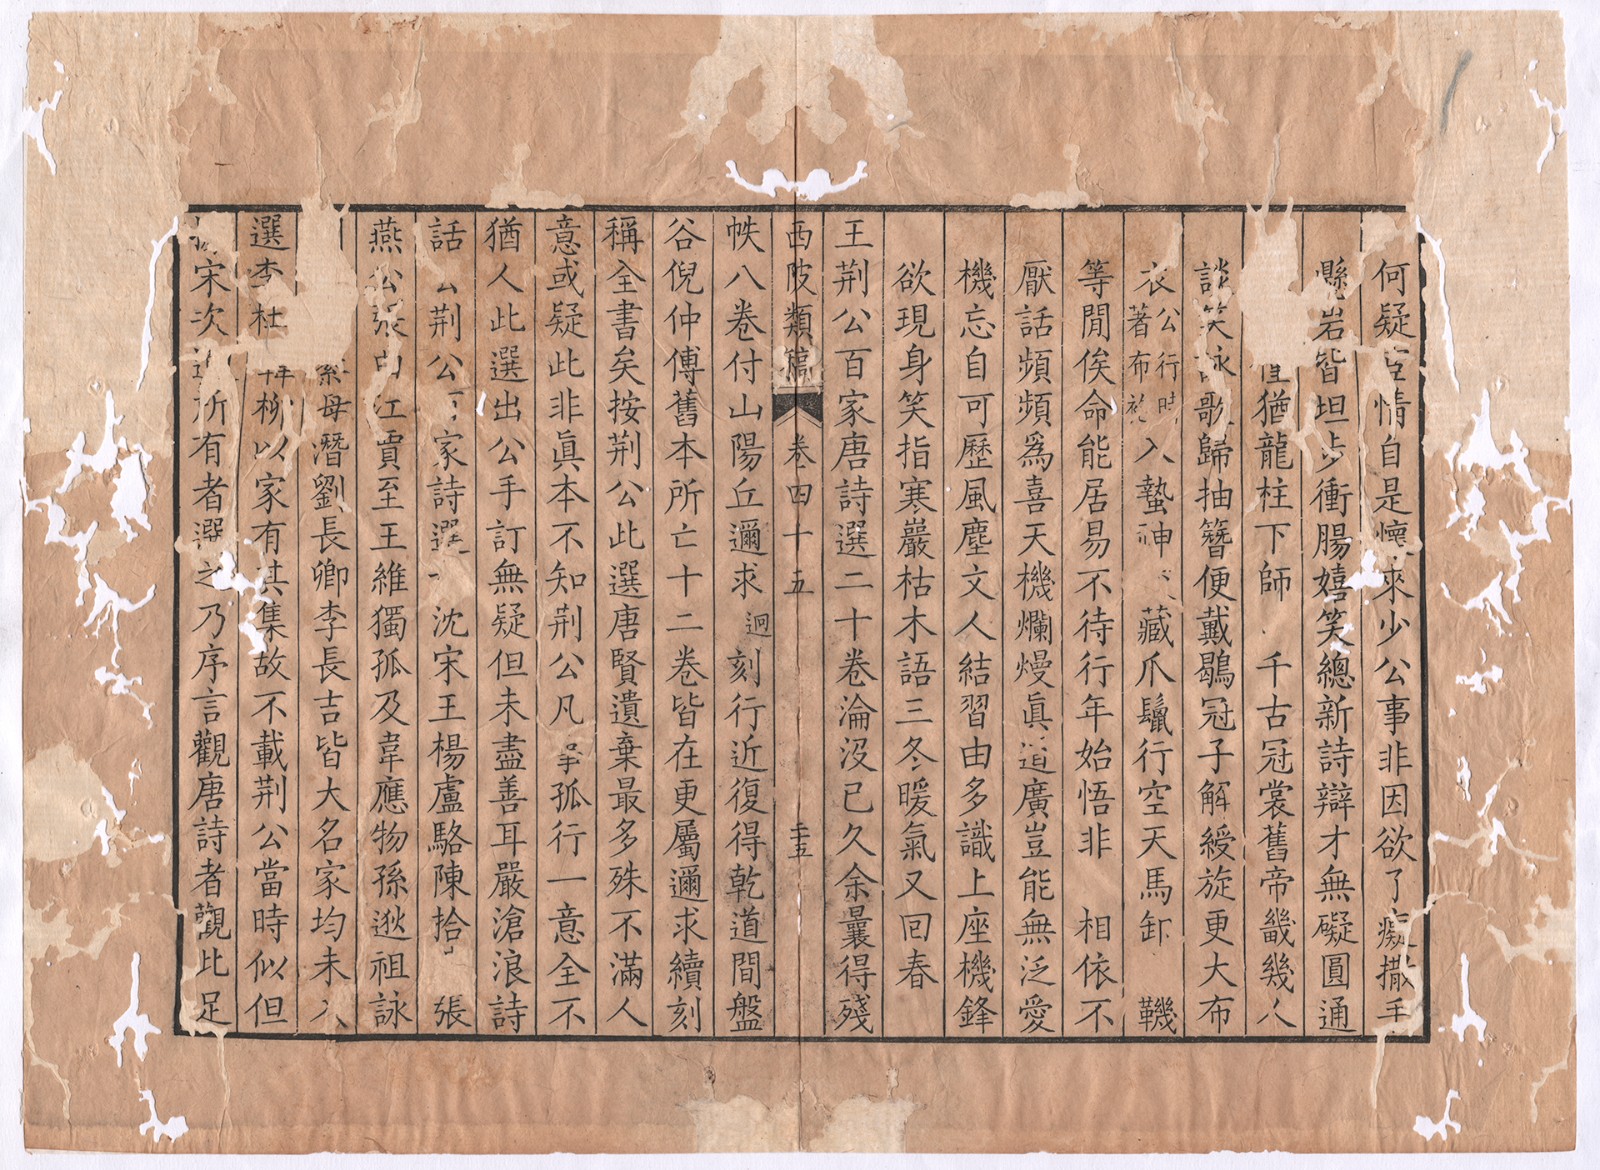 何疑宦情自是懷來少公事非因欲了癡撒手
懸岩皆坦步衝腸嬉笑總新詩辯才無礙圓通
猶龍柱下師千古冠裳舊帝畿幾人
談笑詠歌歸抽簪便戴鶡冠子解綬旋更大布
衣公行時著布入蟄神藏爪鬣行空天馬卸鞿
等閒俟命能居易不待行年始悟非相依不
厭話頻頻為喜天機爛熳真道廣豈能無泛愛
機忘自可歷風塵文人結習由多識上座機鋒
欲現身笑指寒巖枯木語三冬暖氣又回春
王荆公百家唐詩選二十卷淪沒已久余曩得殘
西陂類稿 卷四十五 二十五
帙八卷付山陽丘邇求迥刻行近復得乾道間盤
谷倪仲傅舊本所亡十二卷皆在更屬邇求續刻
稱全書矣按荆公此選唐賢遺棄最多殊不滿人
意或疑此非眞本不知荆公凡事孤行一意全不
猶人此選出公手訂無疑但未盡善耳嚴滄浪詩
話荆公百家詩選沈宋王楊盧駱陳拾張
燕公張曲江賈至王維獨孤及韋應物孫逖祖詠
綦母潛劉長卿李長吉皆大名家均未入
選李杜韓柳以家有其集故不載荆公當時似但
據宋次道所有者選之乃序言觀唐詩者觀此足